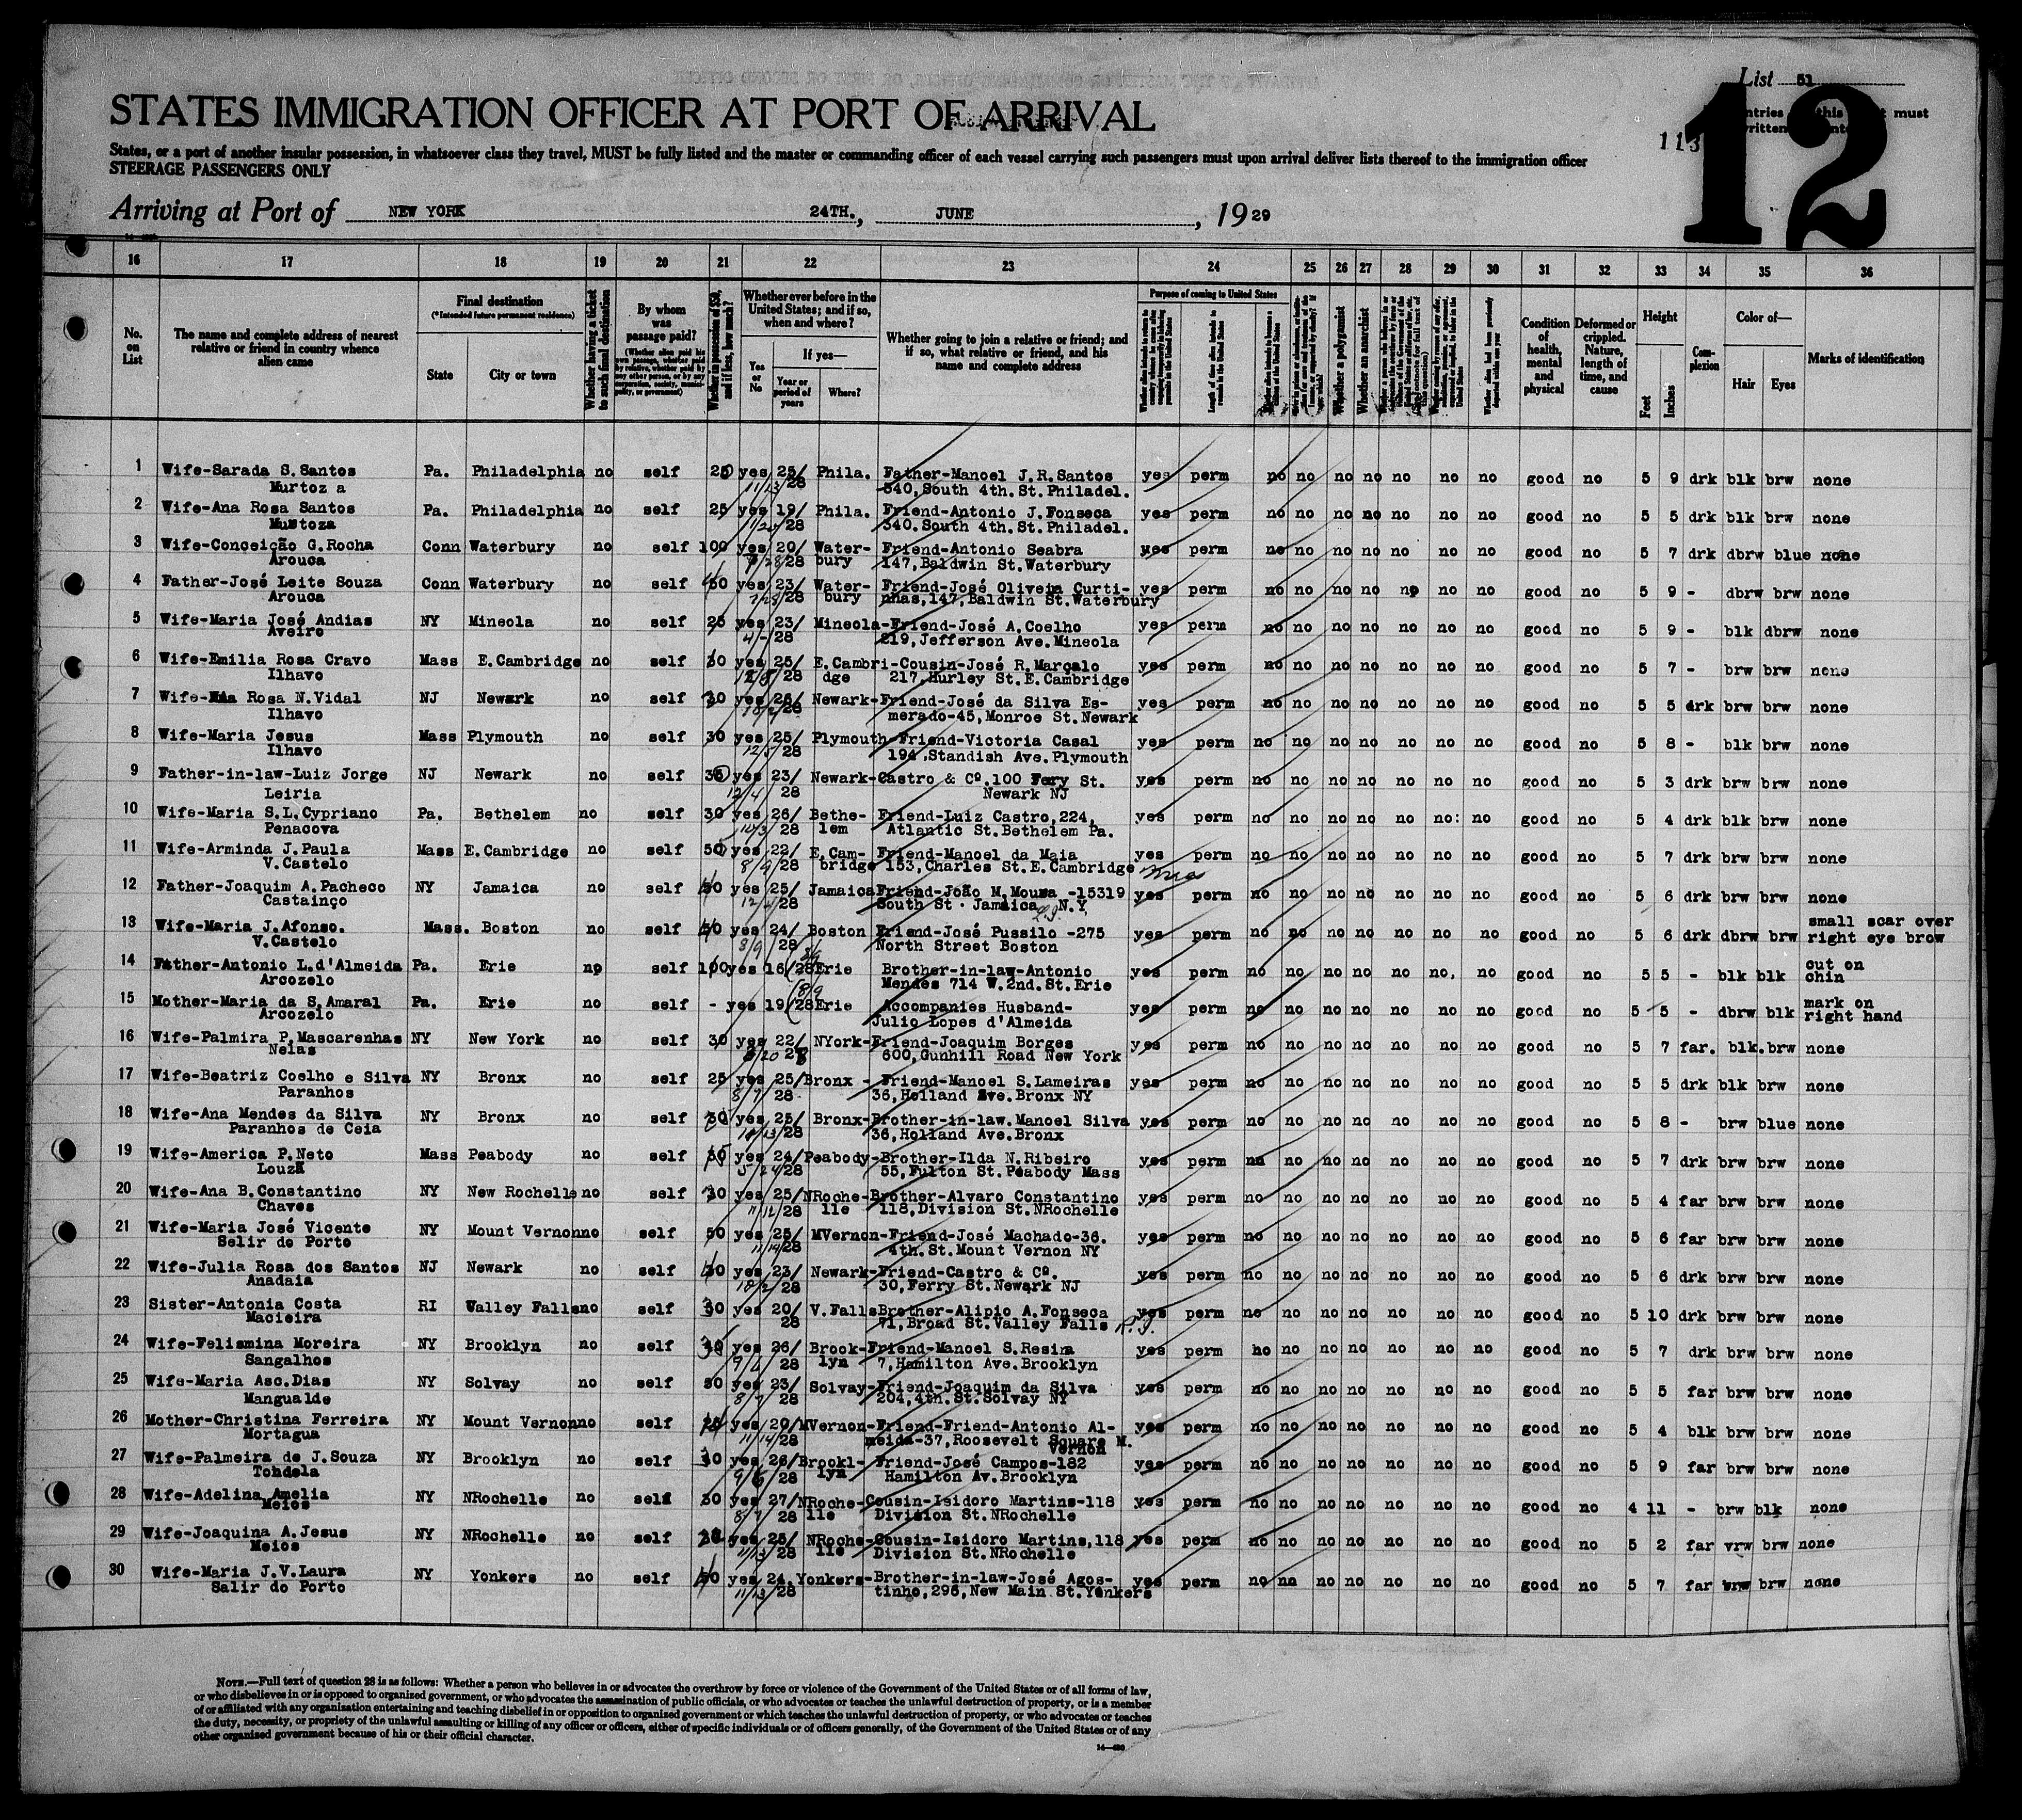 List 51
STATES IMMIGRATION OFFICER AT PORT OF ARRIVAL
12
113
States, or a port of another insular possession, in whatsoever class they travel, MUST be fully listed and the master or commanding officer of each vessel carrying such passengers must upon arrival deliver lists thereof to the immigration officer
STEERAGE PASSENGERS ONLY
Arriving at Port of NEW YORK 24TH., JUNE, 1929
16 17 18 19 20 21 22 23 24 25 26 27 28 29 30 31 32 33 34 35 36
No. on List
The name and complete address of nearest relative or friend in country whence alien came
Final destination
(*Intended future permanent residence)
State City or town
Whether having a ticket to such final destination
By whom was passage paid?
Whether in possession of $50, and if less, how much?
Whether ever before in the United States; and if so, when and where?
Yes or No
If yes—
Year or period of years Where?
Whether going to join a relative or friend; and if so, what relative or friend, and his name and complete address
Purpose of coming to United States
Whether a polygamist
Whether an anarchist
Condition of health, mental and physical
Deformed or crippled. Nature, length of time, and cause
Height
Feet Inches
Complexion
Color of—
Hair Eyes
Marks of identification
1 Wife-Sarada S.Santos Pa. Philadelphia no self 25 yes 25/ Phila. Father-Manoel J.R.Santos yes perm no no no no no no no good no 5 9 drk blk brw none
Murtoz a 11/13/28 340,South 4th.St.Philadel.
2 Wife-Ana Rosa Santos Pa. Philadelphia no self 25 yes 19/ Phila. Friend-Antonio J.Fonseca yes perm no no no no no no no good no 5 5 drk blk brw none
Murtoza 28 340.South 4th.St.Philadel.
3 Wife-Conceição G.Rocha Conn Waterbury no self 100 yes 20/ Water- Friend-Antonio Seabra yes perm no no no no no no no good no 5 7 drk dbrw blue none
Arouca 28 bury 147,Baldwin St.Waterbury
4 Father-José Leite Souza Conn Waterbury no self 50 yes 23/ Water- Friend-José Oliveia Curti- yes perm no no no no no no no good no 5 9 - dbrw brw none
Arouca 28 bury nhas,147,Baldwin St.Waterbury
5 Wife-Maria José Andias NY Mineola no self 25 yes 23/ Mineola-Friend-José A.Coelho yes perm no no no no no no no good no 5 9 - blk dbrw none
Aveiro 4/-/28 219,Jefferson Ave.Mineola
6 Wife-Emilia Rosa Cravo Mass E.Cambridge no self 30 yes 25/ E.Cambri-Cousin-José R.Marçalo yes perm no no no no no no no good no 5 7 - brw brw none
Ilhavo 28 dge 217,Hurley St.E.Cambridge
7 Wife- Rosa N.Vidal NJ Newark no self 30 yes 26/ Newark-Friend-José da Silva Es- yes perm no no no no no no no good no 5 5 drk brw brw none
Ilhavo 28 merado-45,Monroe St.Newark
8 Wife-Maria Jesus Mass Plymouth no self 30 yes 25/ Plymouth-Friend-Victoria Casal yes perm no no no no no no no good no 5 8 - blk brw none
Ilhavo 28 194,Standish Ave.Plymouth
9 Father-in-law-Luiz Jorge NJ Newark no self yes 23/ Newark-Castro & Cº.100 Fery St. yes perm no no no no no no no good no 5 3 drk brw brw none
Leiria 12/4/28 Newark NJ
10 Wife-Maria S.L.Cypriano Pa. Bethelem no self 30 yes 26/ Bethe- Friend-Luiz Castro,224, yes perm no no no no no no: no good no 5 4 drk blk brw none
Penacova 28 lem Atlantic St.Bethelem Pa.
11 Wife-Arminda J.Paula Mass E.Cambridge no self 50 yes 22/ E.Cam- Friend-Manoel da Maia yes perm no no no no no no no good no 5 7 drk brw brw none
V.Castelo 8/9/28 bridge 153,Charles St.E.Cambridge
12 Father-Joaquim A.Pacheco NY Jamaica no self 50 yes 25/ Jamaica Friend-João M.Moura -15319 yes perm no no no no no no no good no 5 6 drk brw brw none
Castainço 28 South St. Jamaica N.Y.
13 Wife-Maria J.Afonso. Mass. Boston no self 50 yes 24/ Boston Friend-José Pussilo -275 yes perm no no no no no no no good no 5 6 drk dbrw brw small scar over
V.Castelo 8/9/28 North Street Boston right eye brow
14 Father-Antonio L.d'Almeida Pa. Erie no self 100 yes 16/28 Erie Brother-in-law-Antonio yes perm no no no no no no, no good no 5 5 - blk blk cut on
Arcozelo Mendes 714 W.2nd.St.Erie chin
15 Mother-Maria da S.Amaral Pa. Erie no self - yes 19/28 Erie Accompanies Husband- yes perm no no no no no no no good no 5 5 - dbrw blk mark on
Arcozelo Julio Lopes d'Almeida right hand
16 Wife-Palmira P.Mascarenhas NY New York no self 30 yes 22/ NYork-Friend-Joaquim Borges yes perm no no no no no no no good no 5 7 far. blk.brw none
Nelas 28 600,Gunhill Road New York
17 Wife-Beatriz Coelho e Silva NY Bronx no self 25 yes 25/Bronx - Friend-Manoel S.Lameiras yes perm no no no no no no no good no 5 5 drk blk brw none
Paranhos 8/7/28 36,Holland Ave.Bronx NY
18 Wife-Ana Mendes da Silva NY Bronx no self yes 25/ Bronx-Brother-in-law.Manoel Silva yes perm no no no no no no no good no 5 8 - brw blue none
Paranhos de Ceia 28 36,Holland Ave.Bronx
19 Wife-America P.Neto Mass Peabody no self yes 24/Peabody-Brother-Ilda N.Ribeiro yes perm no no no no no no no good no 5 7 drk brw brw none
Louzã 5/24/28 55,Fulton St.Peabody Mass
20 Wife-Ana B.Constantino NY New Rochelle no self 30 yes 25/NRoche-Brother-Alvaro Constantino yes perm no no no no no no no good no 5 4 far brw brw none
Chaves 11/12/28 lle 118,Division St.NRochelle
21 Wife-Maria José Vicente NY Mount Vernon no self 50 yes 25/ MVernon-Friend-José Machado-36. yes perm no no no no no no no good no 5 6 far brw brw none
Selir do Porto 11/14/28 4th.St.Mount Vernon NY
22 Wife-Julia Rosa dos Santos NJ Newark no self yes 23/ Newark-Friend-Castro & Cº. yes perm no no no no no no no good no 5 6 drk brw brw none
Anadaia 28 30,Ferry St.Newark NJ
23 Sister-Antonia Costa RI Valley Falls no self 30 yes 20/ V.Falls Brother-Alipio A.Fonseca yes perm no no no no no no no good no 5 10 drk brw brw none
Macieira 28 71,Broad St.Valley Falls R.I.
24 Wife-Felismina Moreira NY Brooklyn no self yes 26/ Brook-Friend-Manoel S.Resina yes perm no no no no no no no good no 5 7 drk brw brw none
Sangalhos 28 lyn 7,Hamilton Ave.Brooklyn
25 Wife-Maria Asc.Dias NY Solvay no self 50 yes 23/ Solvay-Friend-Joaquim da Silva yes perm no no no no no no no good no 5 5 far brw brw none
Mangualde 8/7/28 204,4th.St.Solvay NY
26 Mother-Christina Ferreira NY Mount Vernon no self yes 20/MVernon-Friend-Friend-Antonio Al- yes perm no no no no no no no good no 5 4 blk brw brw none
Mortagua 11/14/28 meida-37,Roosevelt Square M.
Vernon
27 Wife-Palmeira de J.Souza NY Brooklyn no self 30 yes 26/Brockl- Friend-José Campos-182 yes perm no no no no no no no good no 5 9 far brw brw none
Tondela 28 lyn Hamilton Av.Brooklyn
28 Wife-Adelina Amelia NY NRochelle no self 30 yes 27/NRoche-Cousin-Isidoro Martins-118 yes perm no no no no no no no good no 4 11 - brw blk none
Meios 8/7/28 lle Division St.NRochelle
29 Wife-Joaquina A.Jesus NY NRochelle no self yes 25/ NRoche-Cousin-Isidoro Martins,118 yes perm no no no no no no no good no 5 2 far vrw brw none
Meios 11/13/28 lle Division St.NRochelle
30 Wife-Maria J.V.Laura NY Yonkers no self yes 24,Yonkers-Brother-in-law-José Agos- yes perm no no no no no no no good no 5 7 far brw brw none
Salir do Porto 11/13/28 tinho,296,New Main St.Yonkers
NOTE.—Full text of question 28 is as follows: Whether a person who believes in or advocates the overthrow by force or violence of the Government of the United States or of all forms of law,
or who disbelieves in or is opposed to organized government, or who advocates the assassination of public officials, or who advocates or teaches the unlawful destruction of property, or is a member
of or affiliated with any organization entertaining and teaching disbelief in or opposition to organized government or which teaches the unlawful destruction of property, or who advocates or teaches
the duty, necessity, or propriety of the unlawful assaulting or killing of any officer or officers, either of specific individuals or of officers generally, of the Government of the United States or of any
other organized government because of his or their official character.
14—480